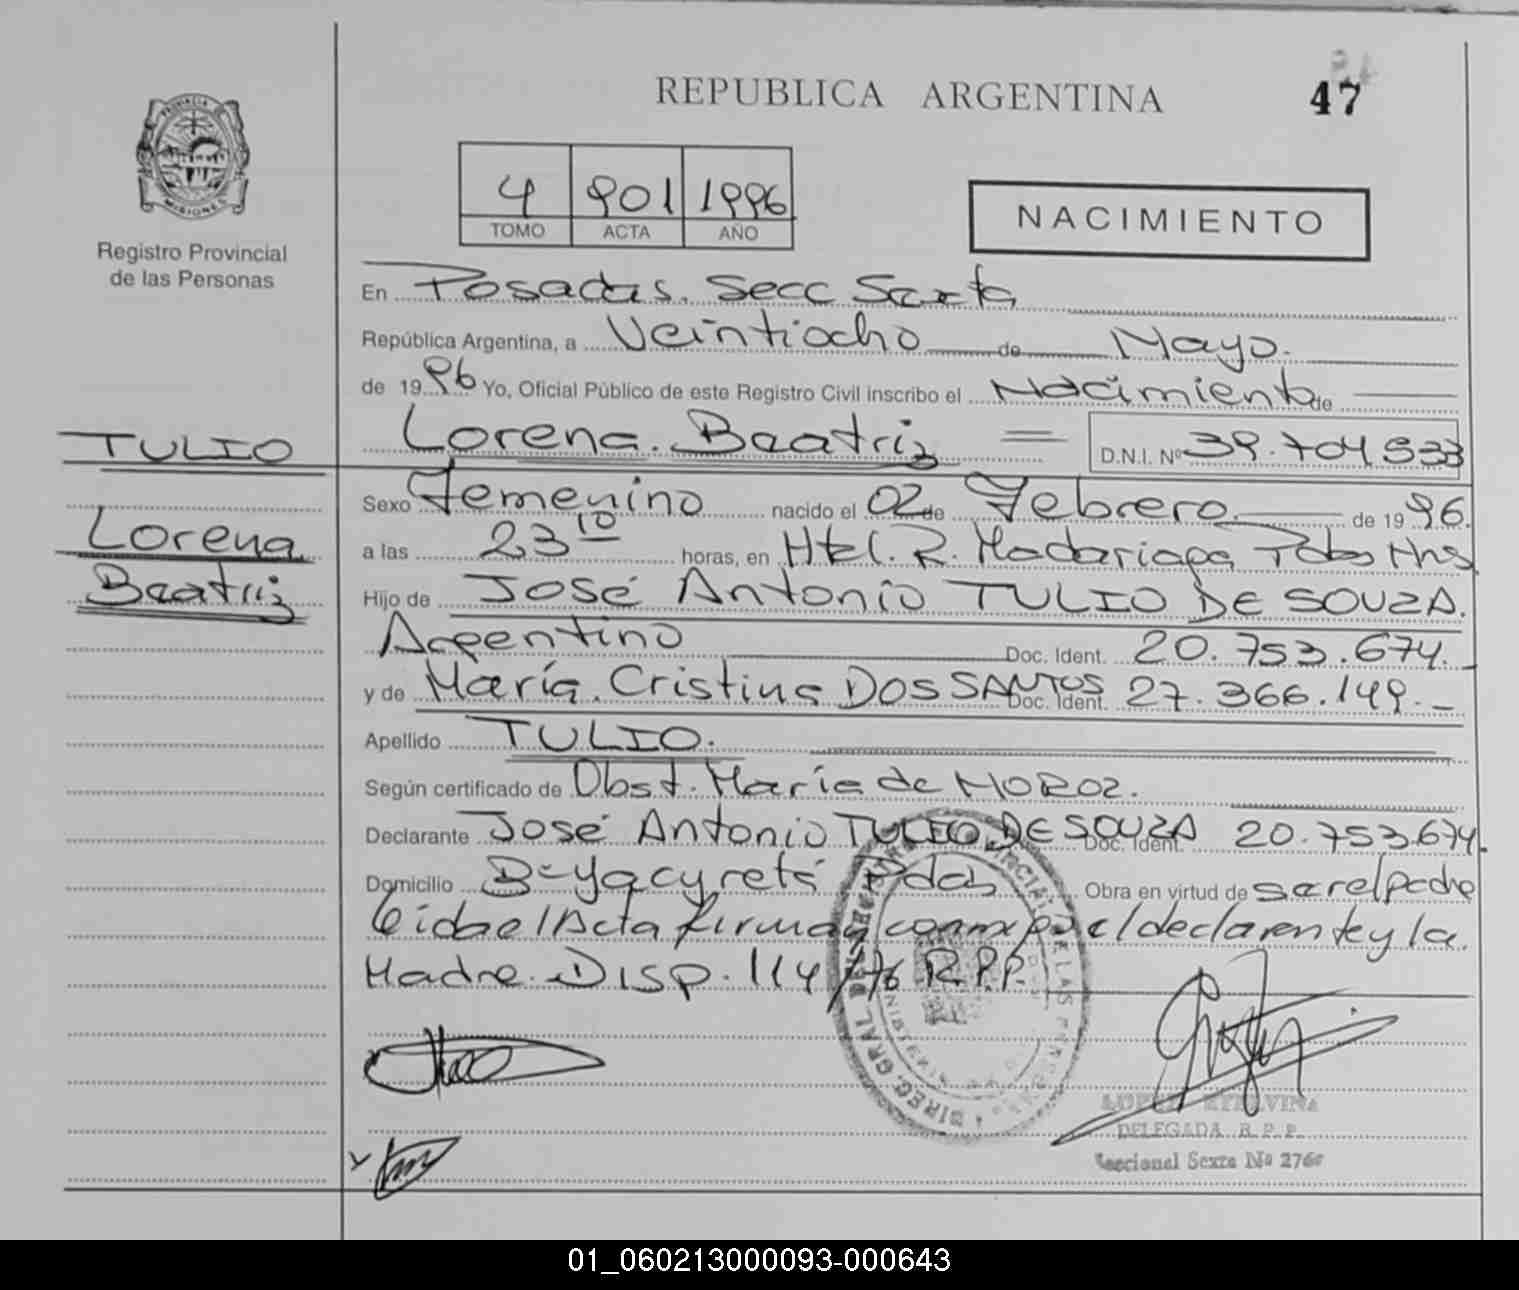 REPUBLICA ARGENTINA
47
PROVINCIA
MISIONES
Registro Provincial
de las Personas
4 901 1996
TOMO ACTA AÑO
NACIMIENTO
En Posadas. Secc Sexta
República Argentina, a Veintiocho de Mayo.
de 1996 Yo, Oficial Público de este Registro Civil inscribo el Nacimiento de
TULIO
Lorena. Beatriz D.N.I. Nº 39.704.933
Sexo Femenino nacido el 02 de Febrero. de 1996.
Lorena
a las 23 10 horas, en Htal. R. Madariaga Pdas Mns
Beatriz
Hijo de José Antonio TULIO DE SOUZA.
Argentino Doc. Ident. 20.753.674.
y de María. Cristina DOS SANTOS Doc. Ident. 27.366.149.
Apellido TULIO.
Según certificado de Obst. María de MOROZ.
Declarante José Antonio TULIO DE SOUZA Doc. Ident. 20.753.674.
Domicilio Bº Yacyretá Pdas Obra en virtud de ser el padre
Leida el Acta firman conmigo el declarante y la
Madre. Disp. 114/76 R.P.P.
DIREC. GRAL DE REGISTRO PROVINCIAL DE LAS PERSONAS
DELEGADA R.P.P.
Seccional Sexta Nº 276
01_060213000093-000643